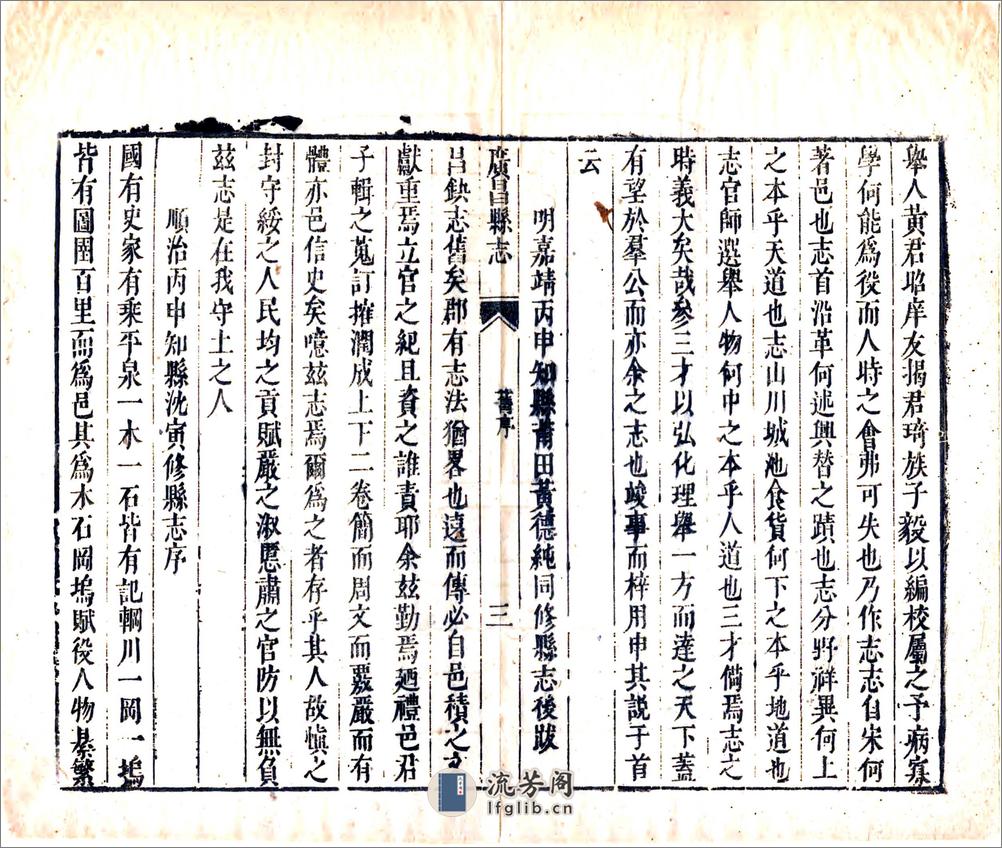 舉人黃君昭庠友揭君琦族子毅以編校屬之予病寡
學何能爲役而人時之會弗可失也乃作志志自宋何
著邑也志首沿革何述興替之蹟也志分野祥異何上
之本乎天道也志山川城池食貨何下之本乎地道也
志官師選舉人物何中之本乎人道也三才備焉志之
時義大矣哉參三才以弘化理舉一方而達之天下蓋
有望於羣公而亦余之志也竣事而梓用申其説于首
云
明嘉靖丙申知縣莆田黃德純同修縣志後跋
廣昌縣志
舊序
三
呂鉄志舊矣郡有志法猶畧也遠而傳必自邑積之方
獻重焉立官之紀且資之誰責耶余兹勤焉廼禮邑君
子輯之蒐訂摧潤成上下二卷簡而周文而覈嚴而有
體亦邑信史矣噫兹志焉爾爲之者存乎其人故慎之
封守綏之人民均之貢賦嚴之淑慝肅之官防以無負
茲志是在我守土之人
順治丙申知縣沈寅修縣志序
國有史家有乘平泉一木一石皆有記輞川一岡一塢
皆有圖圍百里而爲邑其爲木石岡塢賦役人物綦繁
流芳阁
lfglib.cn